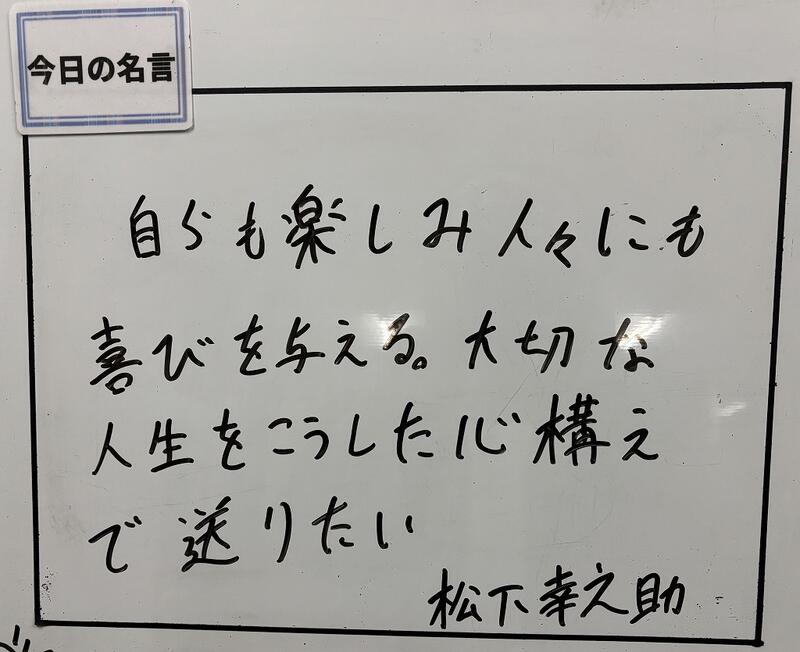 今日の名言
自らも楽しみ人々にも
喜びを与える。大切な
人生をこうした心構え
で送りたい
松下幸之助